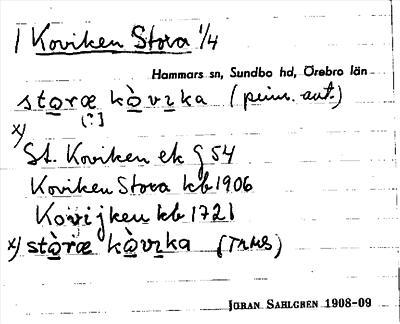 1 Koviken Stora 1/4
Hammars sn, Sundbo hd, Örebro län
storæ kòvɪka (prim. ant.)
[:]
x)
St. Koviken ek G 54
Koviken Stora kb 1906
Kovijken kb 1721
x) stòræ kòvɪka
JÖRAN SAHLGREN 1908-09